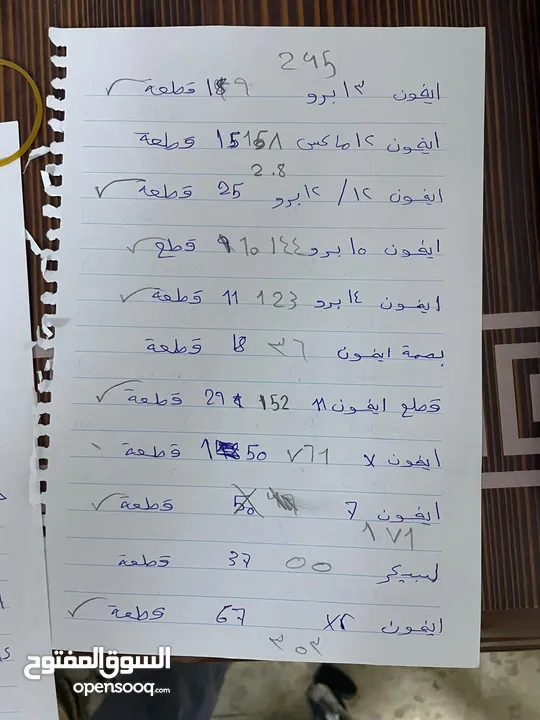 295
ايفون ١٣ برو 9 قطعة
ايفون ١٢ ماكس 15 ١٥٨ قطعة
2.8
ايفون ١٢ / ١٢ برو 25 قطعة
ايفون ١٥ برو ١٤٤ 10 قطع
ايفون ١٤ برو 123 11 قطعة
بصمة ايفون ٣٦ 18 قطعة
قطع ايفون 11 152 29 قطعة
ايفون X ٧٦١ 50 قطعة
ايفون 7 قطعة
١٧١
سبيكر ٥٥ 37 قطعة
ايفون XR 67 قطعة
٣٥٣
السوق المفتوح
opensooq.com